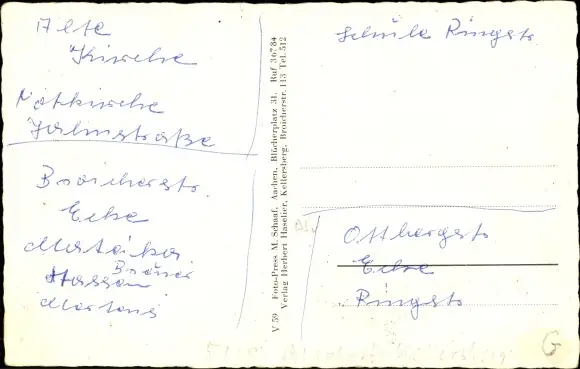 Alte
Kirche
Notkirche
Jahnstraße
Broicherstr.
Ecke
Brauer
Hassan
Martens
V 59 Foto-Press M. Schaaf, Aachen, Blücherplatz 31, Ruf 36784
Verlag Herbert Haselier, Kellersberg, Broicherstr. 113 Tel. 512
Schule Ringstr.
Ottbergstr
Ecke
Ringstr
G